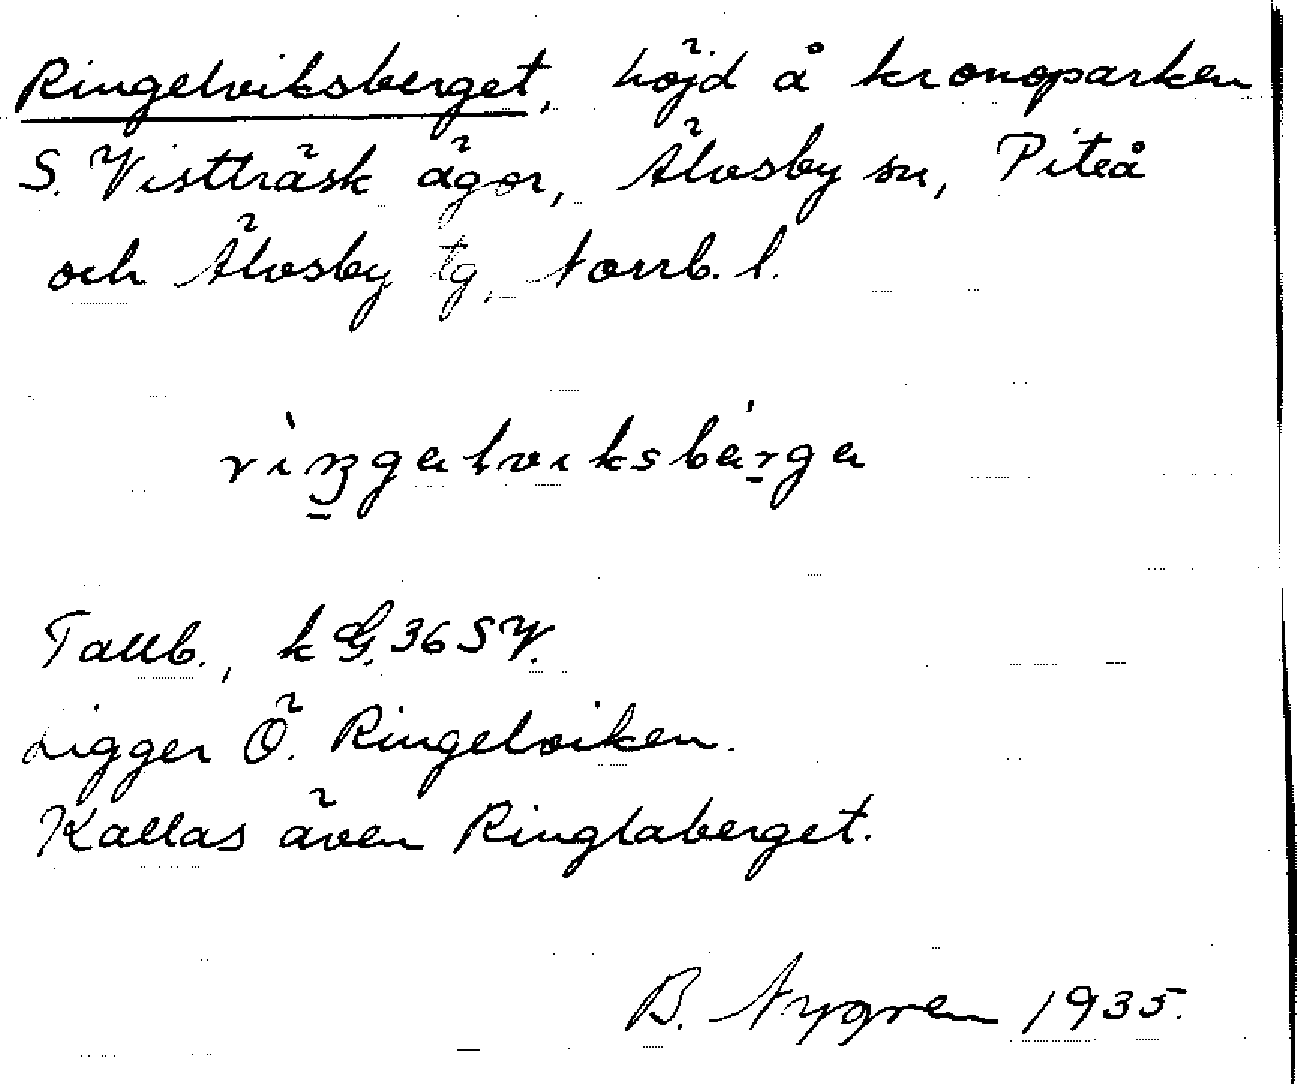 Ringelviksberget, höjd å kronoparken
S. Vistträsk ägor, Älvsby sn, Piteå
och Älvsby tg, Norrb. l.
Tallb., k G. 36 SV.
Ligger Ö. Ringelviken.
Kallas även Ringlaberget.
B. Nygren 1935.